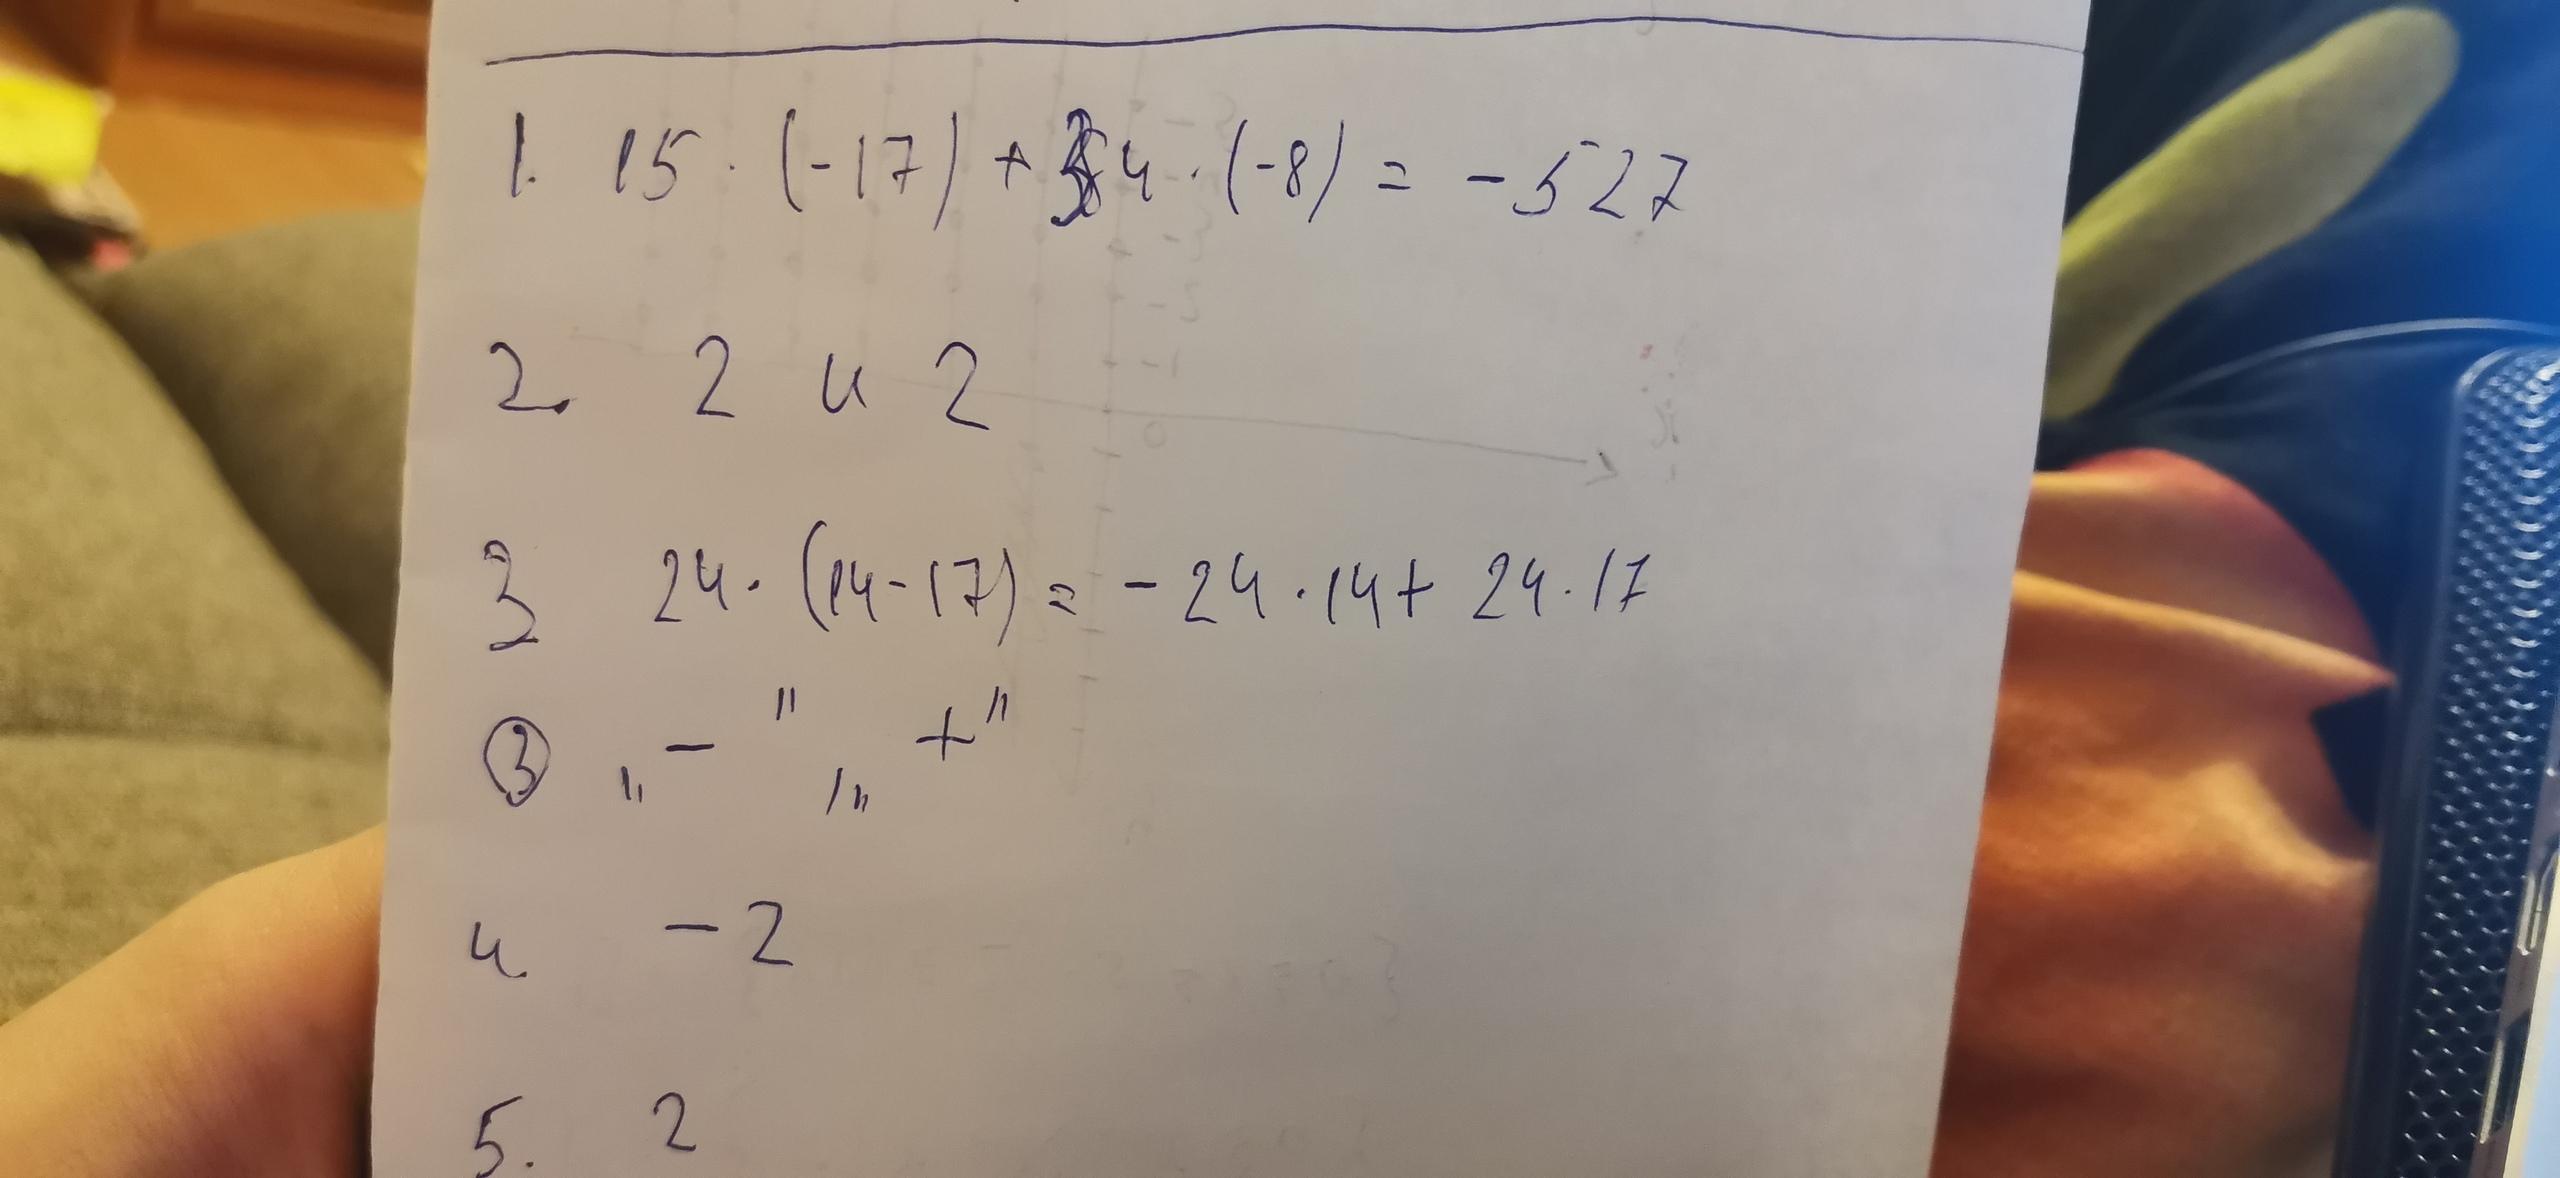 1. 15 · (-17) + 34 · (-8) = -527
2. 2 и 2
3 24 · (14-17) = - 24 · 14 + 24 · 17
③ „ - " „ + "
4. - 2
5. 2